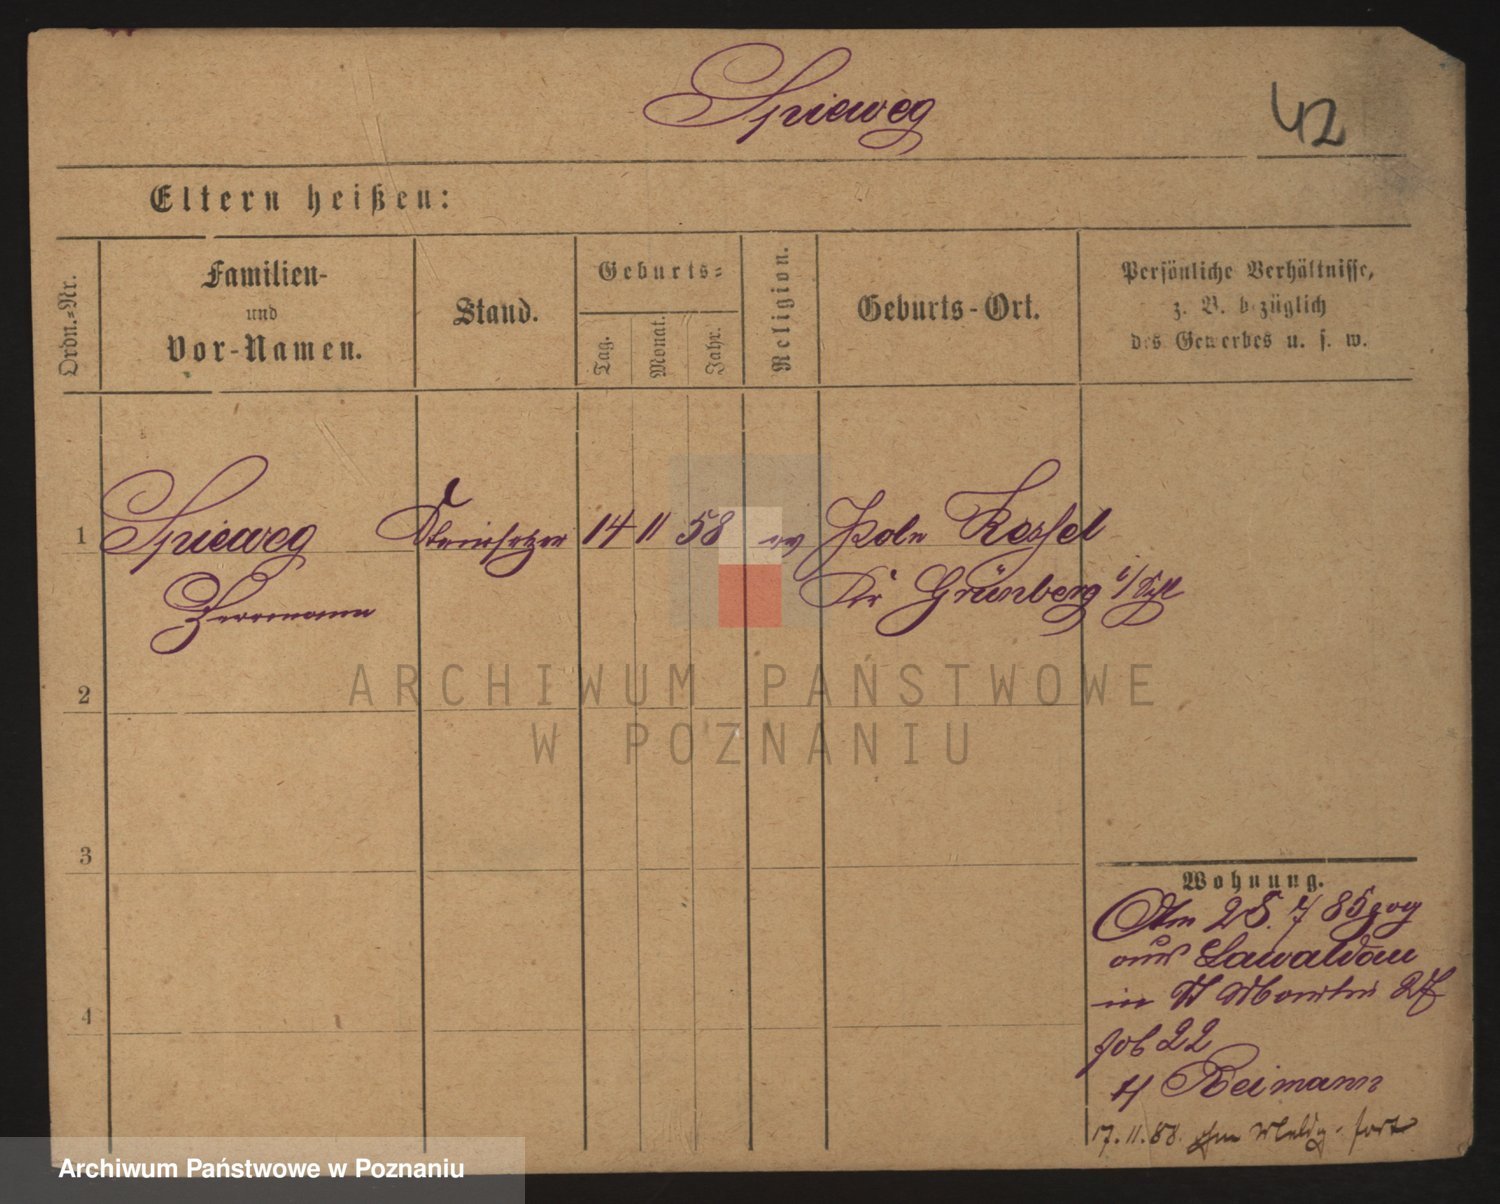 Spieweg
42
Eltern heißen:
Ordn.-Nr.
Familien-
und
Vor-Namen.
Stand.
Geburts-
Tag.
Monat.
Jahr.
Religion.
Geburts-Ort.
Persönliche Verhältnisse,
z. B. bezüglich
des Gewerbes u. s. w.
1
Spieweg Steinsetzer 14 11 58 ev Poln Kessel
Herrmann Kr Grünberg i/Schl
2
ARCHIWUM PAŃSTWOWE
W POZNANIU
3
Wohnung.
Am 28. 7 85 zog
aus Lawaldau
in St Martin
22
Reimann
4
17. 11. 88. ohne Meldg. fort
Archiwum Państwowe w Poznaniu